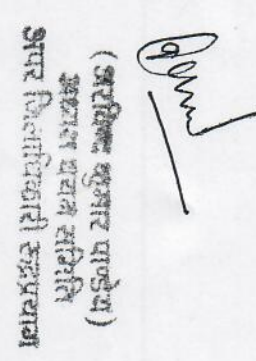 (अरविन्द कुमार पाण्डेय)
अध्यक्ष चयन समिति
अपर जिलाधिकारी रूद्रप्रयाग